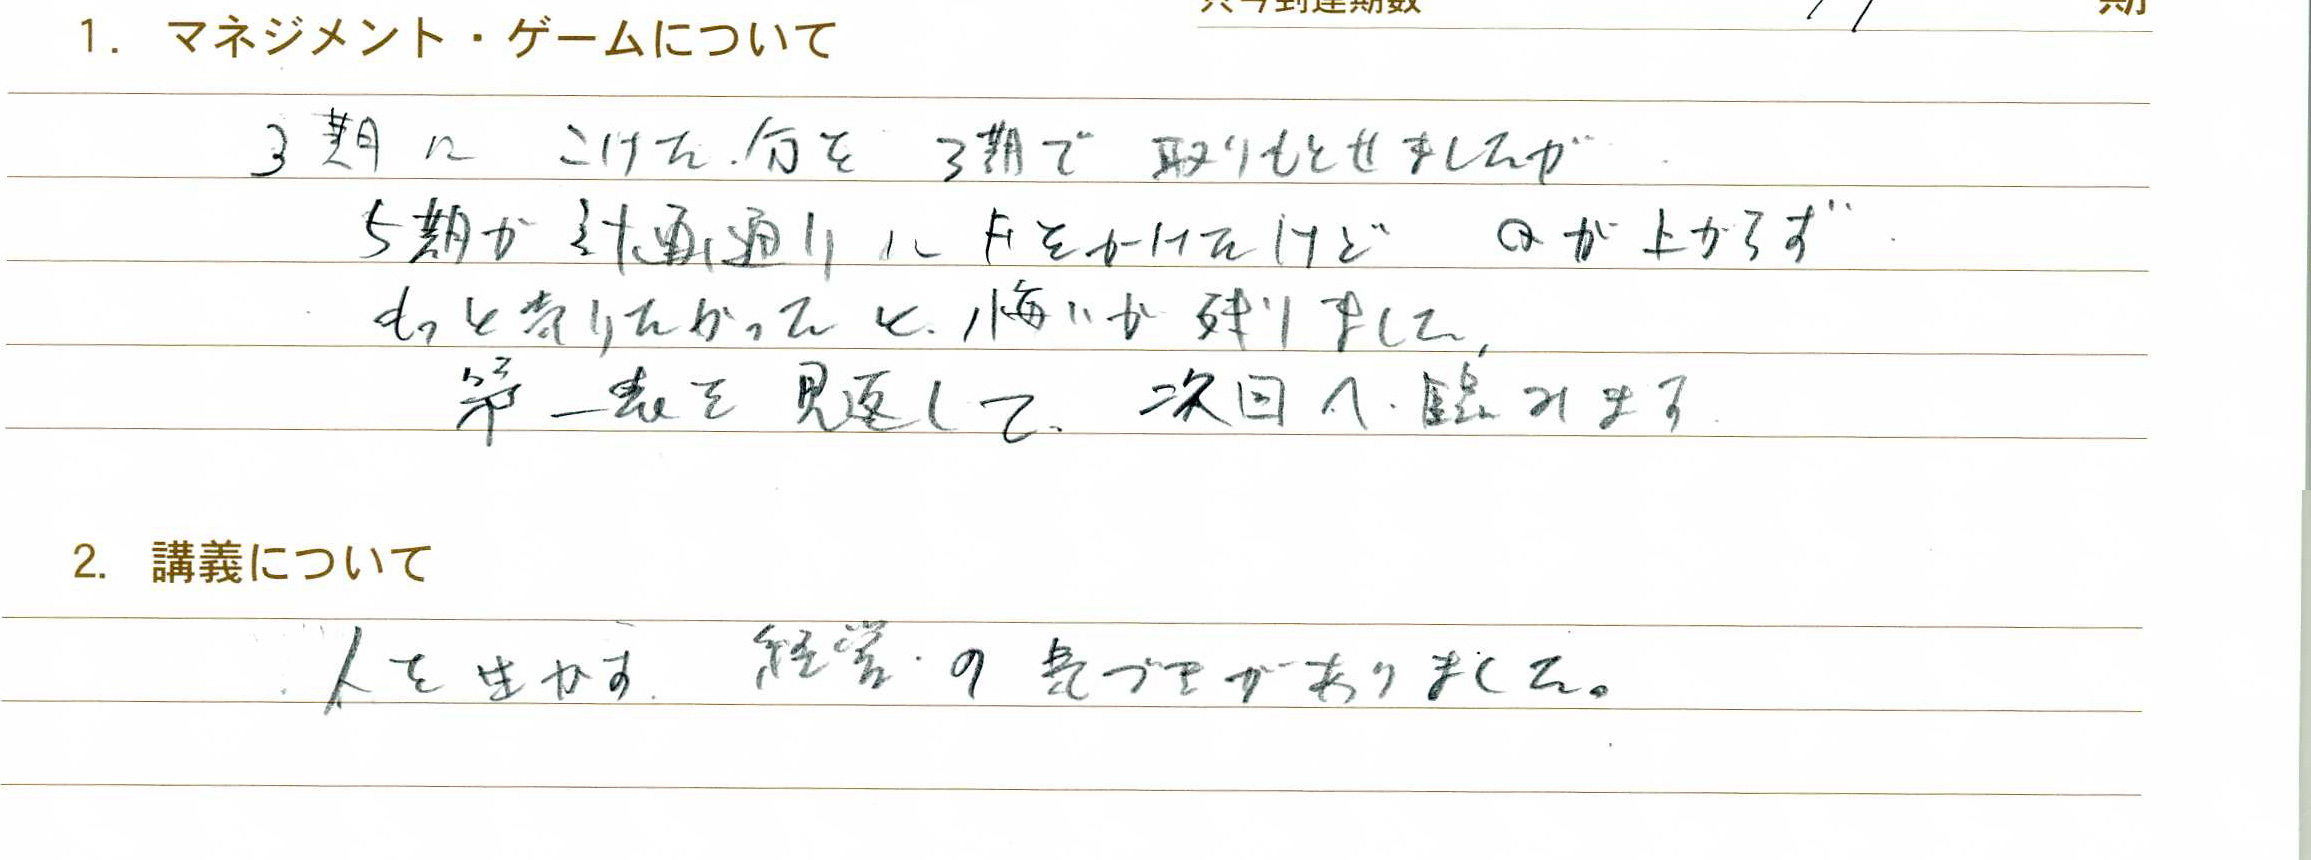 只今到達期数 期
1. マネジメント・ゲームについて
3期に こけた分を 3期で 取りもどせましたが
5期が計画通りにFをかけたけど Qが上がらず
もっと売りたかったと、悔いが残りました、
第一表を見返して、次回へ臨みます
2. 講義について
人を生かす 経営の気づきがありました。